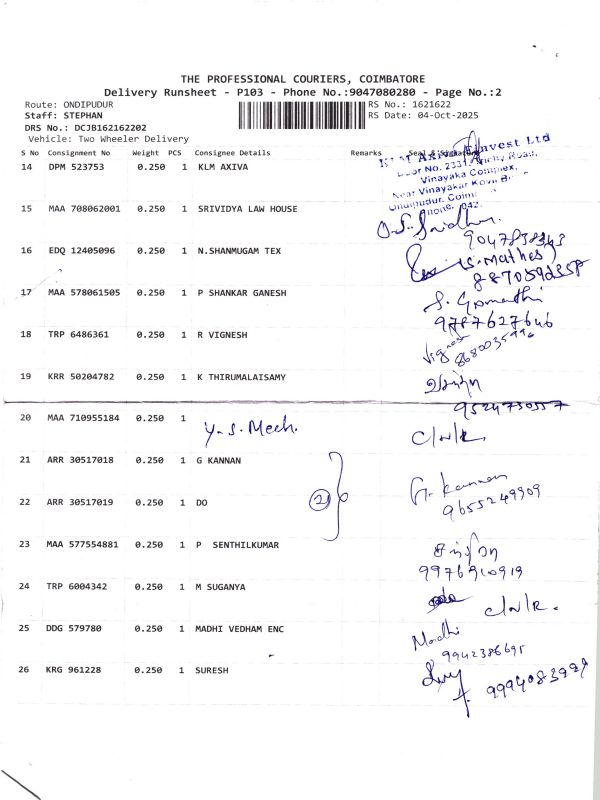 THE PROFESSIONAL COURIERS, COIMBATORE
Delivery Runsheet - P103 - Phone No.:9047080280 - Page No.:2
Route: ONDIPUDUR
Staff: STEPHAN
DRS No.: DCJB162162202
Vehicle: Two Wheeler Delivery
RS No.: 1621622
RS Date: 04-Oct-2025
S No Consignment No Weight PCS Consignee Details Remarks Seal & Signature
14 DPM 523753 0.250 1 KLM AXIVA
KLM Axiva Finvest Ltd
Door No. 2331, Trichy Road,
Vinayaka Complex,
Near Vinayakar Kovil
Ondipudur, Coim
Phone: 042
15 MAA 708062001 0.250 1 SRIVIDYA LAW HOUSE
O.S. Sridhar
16 EDQ 12405096 0.250 1 N.SHANMUGAM TEX
17 MAA 578061505 0.250 1 P SHANKAR GANESH
S. Gomathi
9787627646
18 TRP 6486361 0.250 1 R VIGNESH
Vignesh
19 KRR 50204782 0.250 1 K THIRUMALAISAMY
9524730557
20 MAA 710955184 0.250 1 Y.S. Mech.
21 ARR 30517018 0.250 1 G KANNAN
G. Kannan
9655249909
22 ARR 30517019 0.250 1 DO
2
23 MAA 577554881 0.250 1 P SENTHILKUMAR
9976910919
24 TRP 6004342 0.250 1 M SUGANYA
25 DDG 579780 0.250 1 MADHI VEDHAM ENC
Madhi
9942386695
26 KRG 961228 0.250 1 SURESH